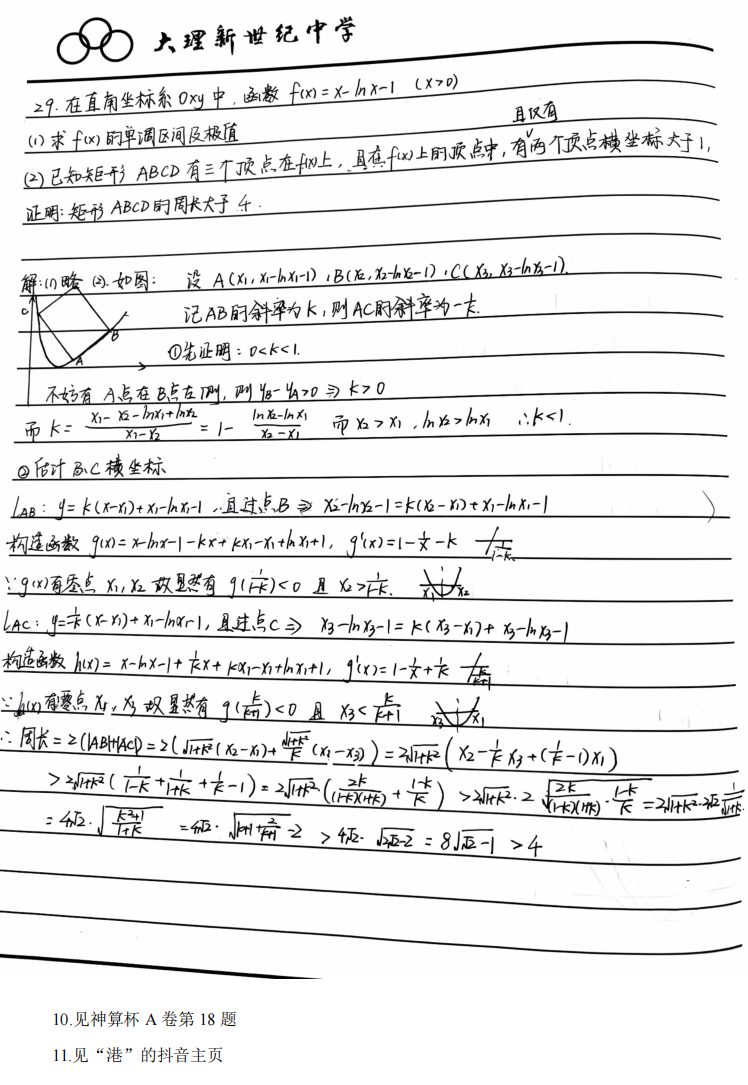 大理新世纪中学
29. 在直角坐标系 Oxy 中, 函数 f(x) = x - ln x - 1 (x>0)
(1) 求 f(x) 的单调区间及极值
且仅有
(2) 已知矩形 ABCD 有三个顶点在f(x)上, 且在f(x)上的顶点中, 有两个顶点横坐标大于1,
证明: 矩形 ABCD 的周长大于 4.
解: (1) 略 (2). 如图: 设 A(x₁, x₁-lnx₁-1), B(x₂, x₂-lnx₂-1), C(x₃, x₃-lnx₃-1).
记 AB 的斜率为 k, 则 AC 的斜率为 -1/k.
C A B
①先证明: 0<k<1.
不妨有 A点在B点左侧, 则 y_B - y_A>0 ⇒ k>0
而 k = (x₁-x₂-lnx₁+lnx₂)/(x₁-x₂) = 1 - (lnx₂-lnx₁)/(x₂-x₁) 而 x₂>x₁, lnx₂>lnx₁ ∴k<1.
②估计 B、C 横坐标
l_AB: y = k(x-x₁)+x₁-lnx₁-1, 且过点B ⇒ x₂-lnx₂-1 = k(x₂-x₁)+x₁-lnx₁-1
构造函数 g(x) = x-lnx-1-kx+kx₁-x₁+lnx₁+1, g'(x)=1-1/x-k 1/(1-k)
∵g(x)有零点 x₁, x₂ 故显然有 g(1/(1-k))<0 且 x₂>1/(1-k). x₁ x₂
l_AC: y=-1/k(x-x₁)+x₁-lnx₁-1, 且过点C ⇒ x₃-lnx₃-1 = k(x₃-x₁)+x₃-lnx₃-1
构造函数 h(x) = x-lnx-1+1/k x+kx₁-x₁+lnx₁+1, g'(x)=1-1/x+1/k k/(k+1)
∵h(x)有零点 x₁, x₃ 故显然有 g(k/(k+1))<0 且 x₃<k/(k+1) x₃ x₁
∴周长=2(|AB|+|AC|)=2(√(1+k²)(x₂-x₁)+√(1+k²)/k (x₁-x₃))=2√(1+k²)(x₂-1/k x₃+(1/k-1)x₁)
>2√(1+k²)(1/(1-k)+1/(1+k)+1/k-1)=2√(1+k²)(2k/((1-k)(1+k))+(1-k)/k) >2√(1+k²)·2√(2k/((1-k)(1+k))·(1-k)/k)=2√(1+k²)·2√2 1/√(1+k).
=4√2·√((k²+1)/(1+k)) =4√2·√(k+1+2/(k+1)-2) >4√2·√(2√2-2) =8√(√2-1) >4
10.见神算杯 A 卷第 18 题
11.见“港”的抖音主页